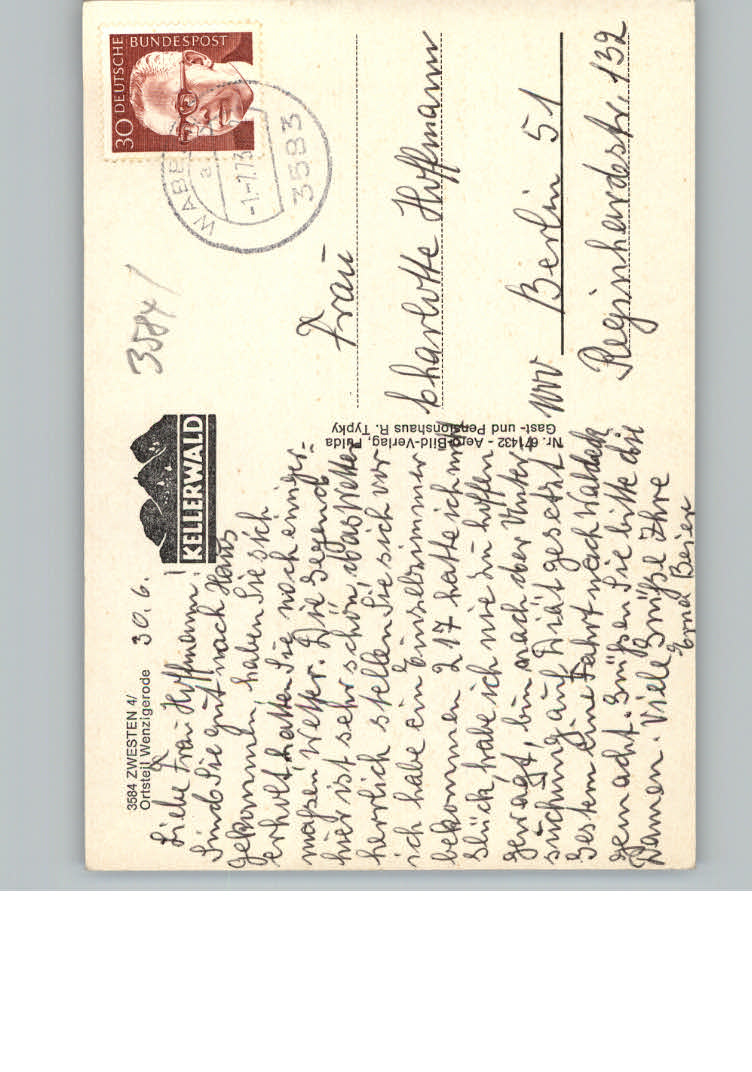 3584 ZWESTEN 4/
Ortsteil Wenzigerode
30.6.
KELLERWALD
Liebe Frau Hoffmann!
Sind Sie gut nach Haus
gekommen, haben Sie sich
erholt hatten Sie noch einiger-
maßen Wetter. Die Gegend
hier ist sehr schön, das Wetter
herrlich stellen Sie sich vor
ich habe ein Einzelzimmer
bekommen 217 hatte ich nur
Glück, habe ich nie zu hoffen
gewagt, bin nach der Unter-
suchung auf Diät gesetzt
Gestern eine Fahrt nach Waldeck
gemacht. Grüßen Sie bitte die
Damen. Viele Grüße Ihre
Erna Beier
Nr. 671432 - Aero-Bild-Verlag, Fulda
Gast- und Pensionshaus R. Typky
3584/
30 DEUTSCHE BUNDESPOST
WABE
a
-1.-7.73
3583
Frau
Charlotte Hoffmann
Berlin 51
Reginhardestr. 132